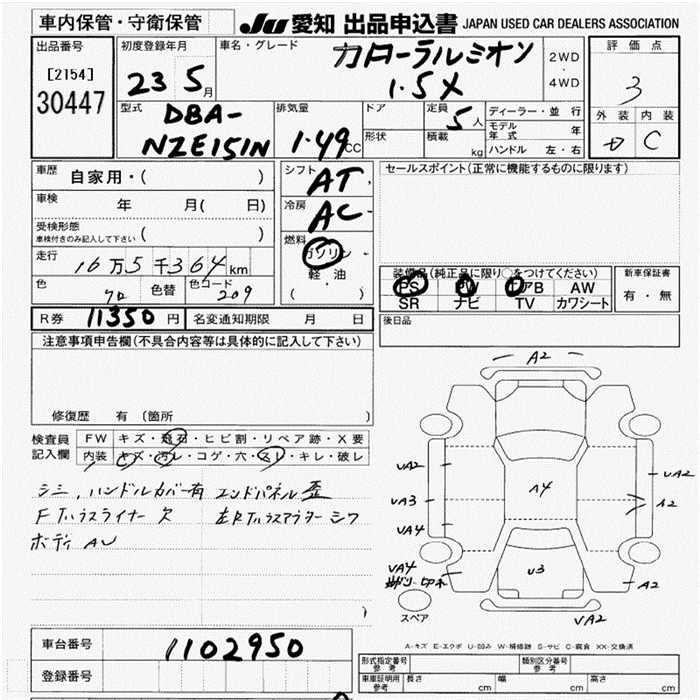 車内保管・守衛保管
JU 愛知 出品申込書 JAPAN USED CAR DEALERS ASSOCIATION
出品番号
[2154]
30447
初度登録年月
23 5月
車名・グレード
カローラルミオン
1.5X
2WD
・
4WD
評価点
3
外装 内装
C
型式
DBA-
NZE151N
排気量
1.49cc
ドア
形状
定員
5人
積載
kg
ディーラー・並行
モデル年式 年
ハンドル 左・右
車歴
自家用・( )
車検
年 月( 日)
受検形態
車検付きのみ記入して下さい ( )
走行
16万5千364km
色
70
色替
色コード
209
シフト
AT
冷房
AC
燃料
ガソリン
軽・油
( )
セールスポイント(正常に機能するものに限ります)
装備品(純正品に限り○をつけてください)
PS PW エアB AW
SR ナビ TV カワシート
新車保証書
有・無
R券 11350円
名変通知期限 月 日
後日品
注意事項申告欄(不具合内容等は具体的に記入して下さい)
修復歴 有 〔箇所 〕
検査員
記入欄
FW キズ・飛石・ヒビ割・リペア跡・X要
内装 キズ・汚レ・コゲ・穴・スレ・キレ・破レ
シミ,ハンドルカバー有 エンドパネル歪
Fインナーライナー欠
ボディ AU
A2
UA2
UA3
UA4
UA4
A4
U3
UA2
A2
A2
UA2
スペア
A-キズ E-エクボ U-凹み W-補修跡 S-サビ C-腐食 XX-交換済
車台番号
1102950
登録番号
形式指定番号
参考
類別区分番号
参考
車庫証明用
参考
長さ cm
幅 cm
高さ cm